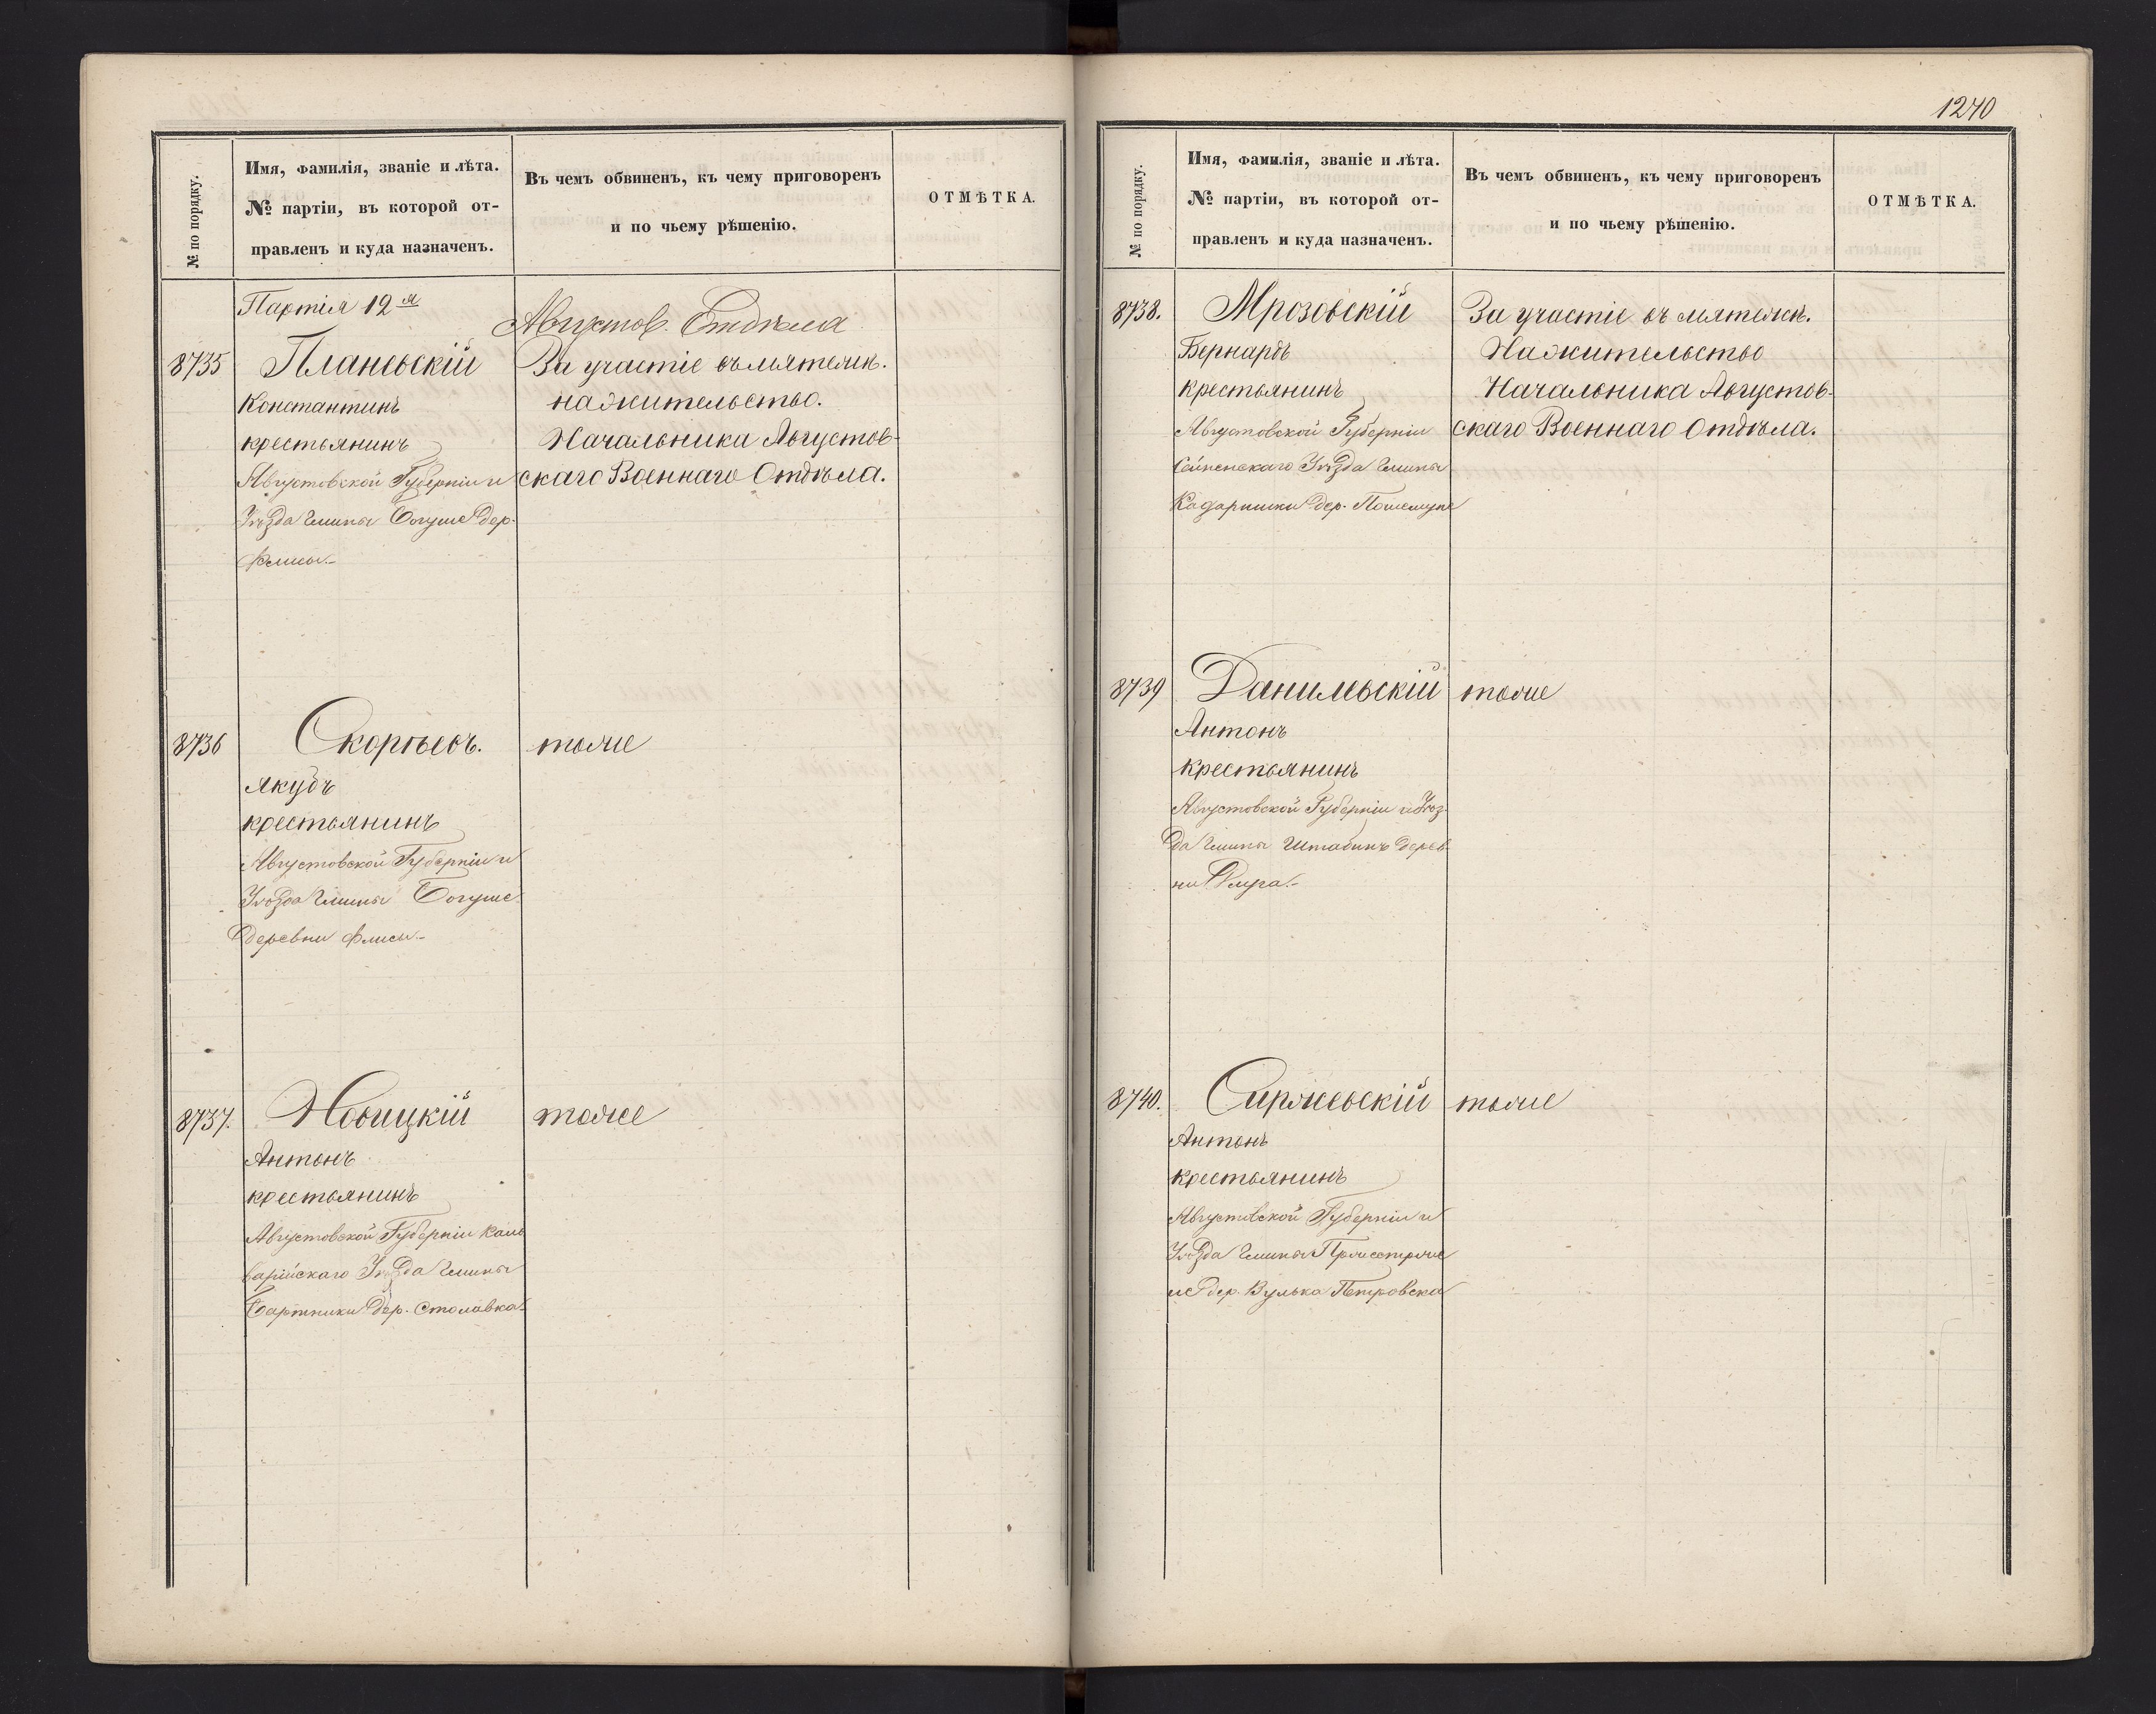 № по порядку.
Имя, фамилія, званіе и лѣта.
№ партіи, въ которой от-
правленъ и куда назначенъ.
Въ чемъ обвиненъ, къ чему приговоренъ
и по чьему рѣшенію.
ОТМѢТКА.
Партія 12я
Августов. Отдѣла
8735
Планевскій
Константинъ
крестьянинъ
Августовской Губерніи и
Уѣзда Гмины Богуше дер.
За участіе въ мятежѣ.
на жительство.
Начальника Августов-
скаго Военнаго Отдѣла.
8736
Скоргевъ.
Якубъ
крестьянинъ
Августовской Губерніи и
Уѣзда Гмины Богуше
деревни Флисы
тоже
8737.
Новицкій
Антонъ
крестьянинъ
Августовской Губерніи Каль
варійскаго Уѣзда Гмины
Бартники дер. Столавка
тоже
1240
№ по порядку.
Имя, фамилія, званіе и лѣта.
№ партіи, въ которой от-
правленъ и куда назначенъ.
Въ чемъ обвиненъ, къ чему приговоренъ
и по чьему рѣшенію.
ОТМѢТКА.
8738.
Мрозовскій
Бернардъ
крестьянинъ
Августовской Губерніи
Сейненскаго Уѣзда Гмины
дер.
За участіе въ мятежѣ.
На жительство
Начальника Августов-
скаго Военнаго Отдѣла.
8739
Данилевскій
Антонъ
крестьянинъ
Августовской Губерніи и Уѣз-
да Гмины Штабинъ дерев-
ни
тоже
8740.
Сиржевскій
Антонъ
крестьянинъ
Августовской Губерніи и
Уѣзда Гмины
дер. Вулька Петровска
тоже